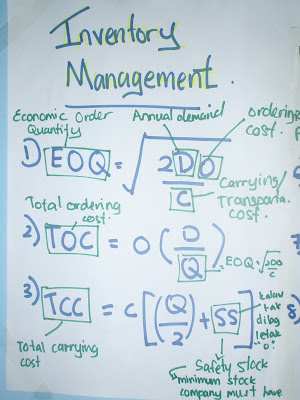 Inventory
Management.
Economic Order
Quantity
Annual demand
ordering
cost.
1) EOQ = √2DO
C
Carrying/
Transporta.
cost.
Total ordering
cost.
2) TOC = O (D
Q)
EOQ = √200
C
3) TCC = C [(Q
2) + SS]
kalau
tak
dibg
letak
"0"
Total carrying
cost
Safety stock
minimum stock
company must have
8)